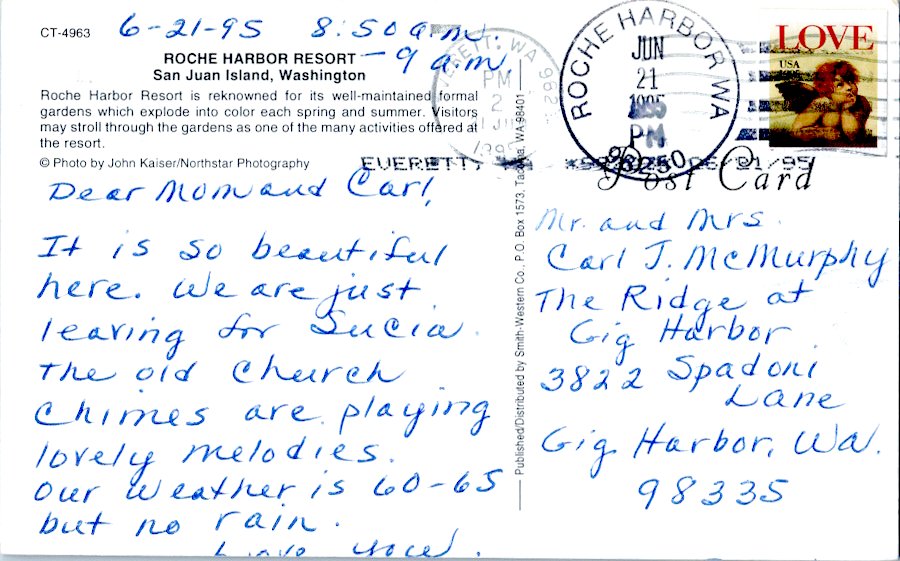 CT-4963
6-21-95 8:50 a.m. - 9 a.m.
ROCHE HARBOR RESORT
San Juan Island, Washington
Roche Harbor Resort is reknowned for its well-maintained formal
gardens which explode into color each spring and summer. Visitors
may stroll through the gardens as one of the many activities offered at
the resort.
© Photo by John Kaiser/Northstar Photography
Dear Mom and Carl,
It is so beautiful
here. We are just
leaving for Sucia.
The old church
chimes are playing
lovely melodies.
Our weather is 60-65
but no rain.
Love you.
Published/Distributed by Smith-Western Co., P.O. Box 1573, Tacoma, WA 98401
EVERETT, WA 982
PM
2
1995
EVERETT
/21/95
ROCHE HARBOR WA
JUN
21
1995
PM
98250
LOVE
USA
Post Card
Mr. and Mrs.
Carl J. McMurphy
The Ridge at
Gig Harbor
3822 Spadoni
Lane
Gig Harbor, Wa.
98335